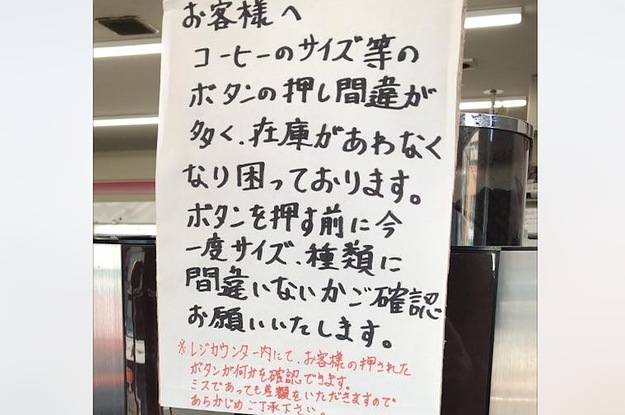 お客様へ
コーヒーのサイズ等の
ボタンの押し間違が
多く、在庫があわなく
なり困っております。
ボタンを押す前に今
一度サイズ、種類に
間違いないかご確認
お願いいたします。
※レジカウンター内にて、お客様の押された
ボタンが何かを確認できます。
ミスであっても差額をいただきますので
あらかじめご了承下さい。